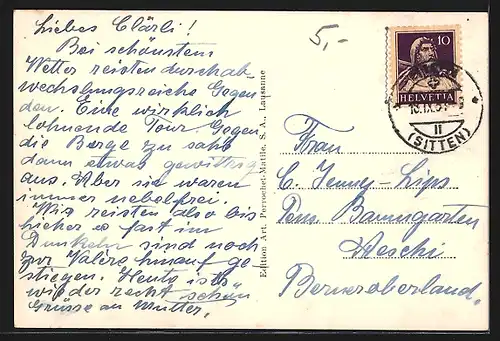 Liebes Clärli!
Bei schönstem
Wetter reisten durch ab
wechslungsreiche Gegen
den. Eine wirklich
lohnende Tour. Gegen
die Berge zu sah's
dann etwas gewittrig
aus. Aber sie waren
immer nebelfrei.
Wir reisten also bis
hieher & fast im
Dunkeln sind noch
zur Valère hinauf ge
stiegen. Heute ists
wieder recht schön
Grüsse an Mutter.
5,-
Edition Art. Perrochet-Matile, S. A., Lausanne
10
HELVETIA
II
(SITTEN)
Frau
C. Jenny-Lips
Pens. Baumgarten
Aeschi
Berneroberland.